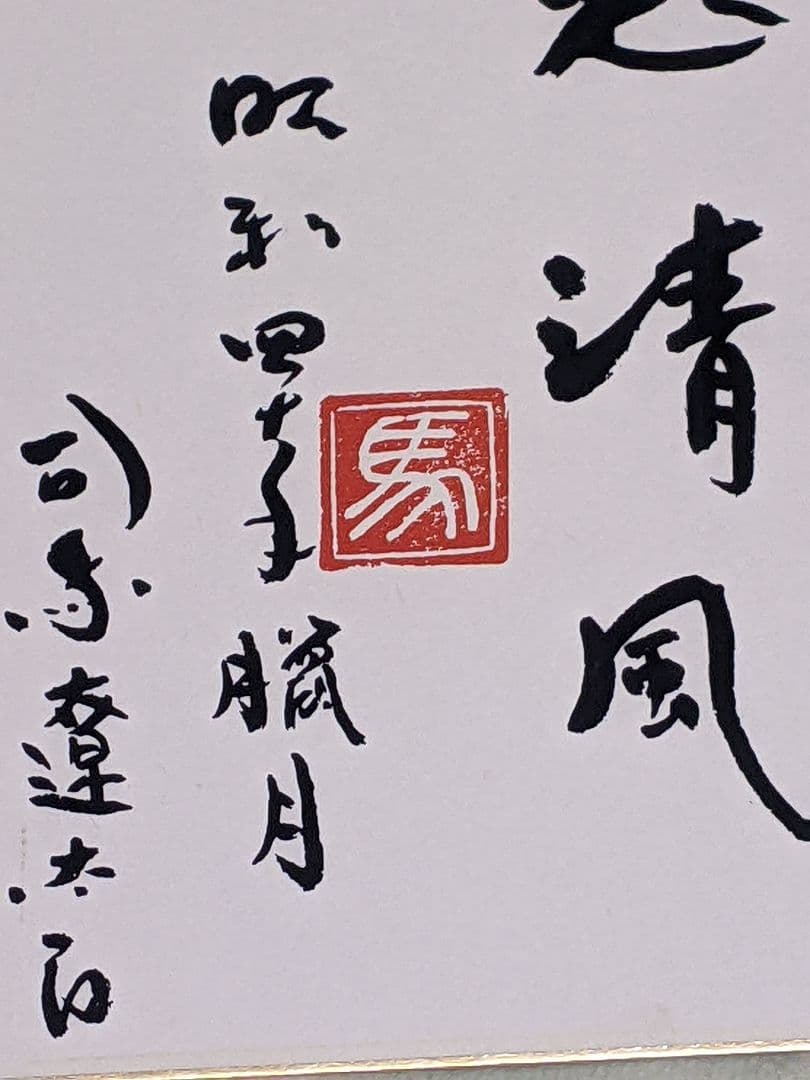 清風
昭和四十年臘月
馬
司馬遼太郎